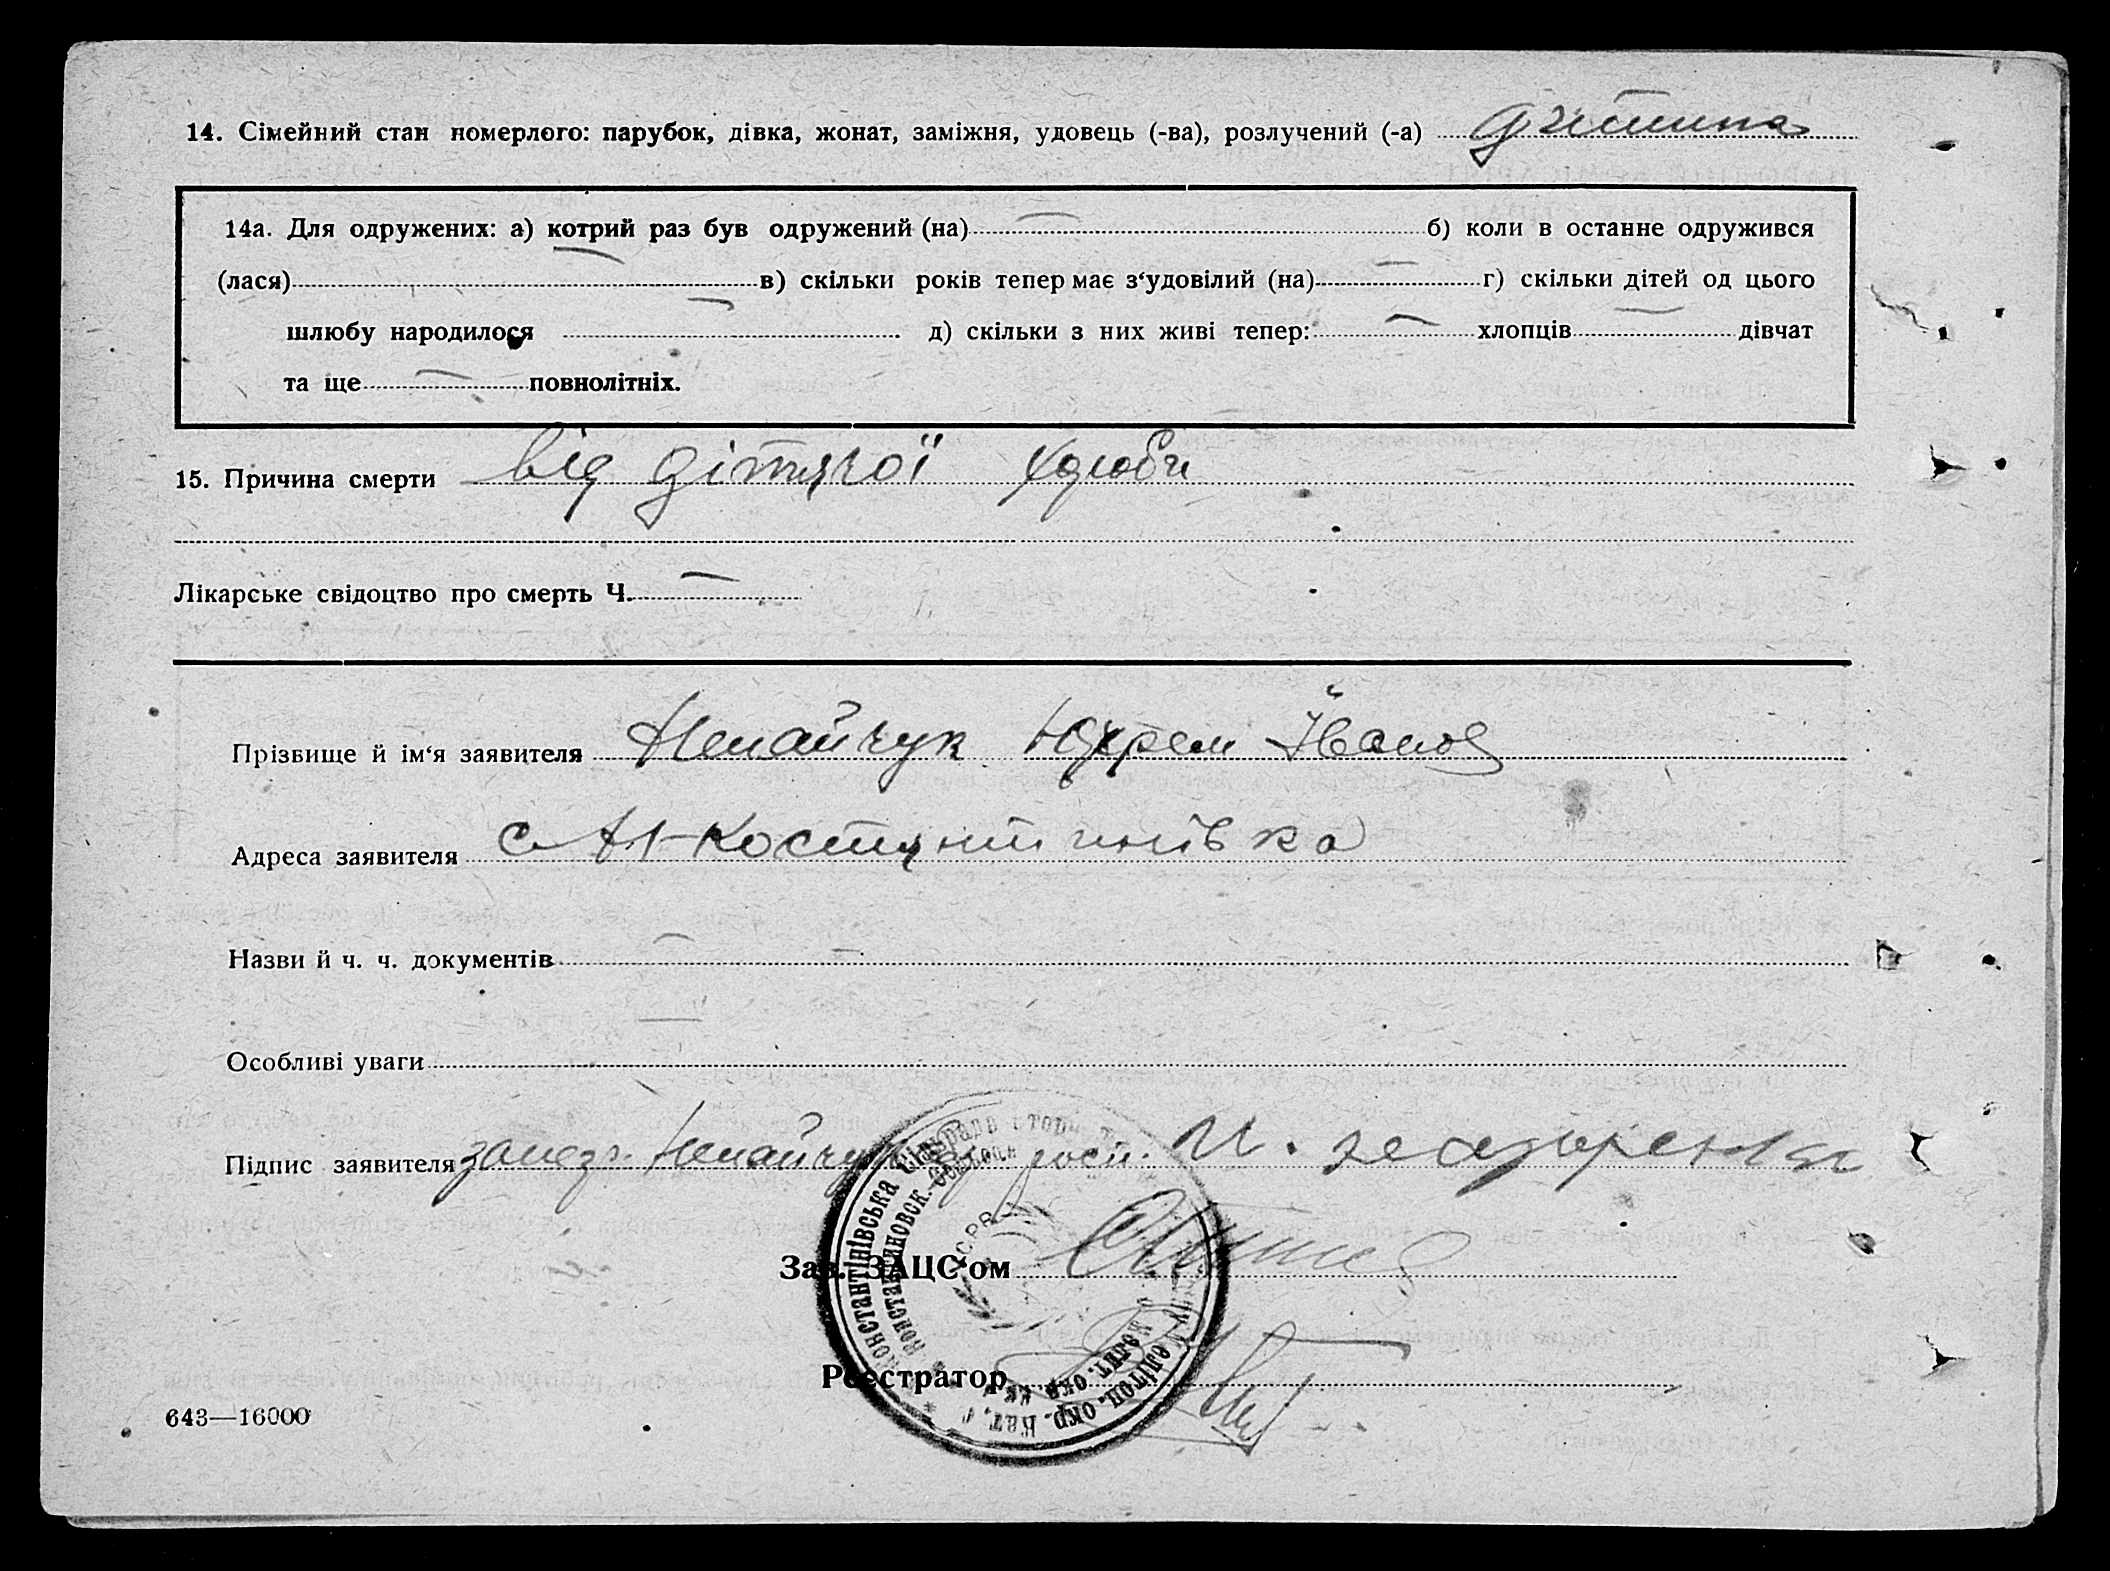 14. Сімейний стан номерлого: парубок, дівка, жонат, заміжня, удовець (-ва), розлучений (-а) дитина
14а. Для одружених: а) котрий раз був одружений (на) — б) коли в останне одружився
(лася) — в) скільки років тепер має з‘удовілий (на) — г) скільки дітей од цього
шлюбу народилося — д) скільки з них живі тепер: — хлопців — дівчат
та ще — повнолітніх.
15. Причина смерти від дітячої хороби
Лікарське свідоцтво про смерть Ч. —
Прізвище й ім‘я заявителя Іванов
Адреса заявителя с Костянтинівка
Назви й ч. ч. документів —
Особливі уваги —
Підпис заявителя
Зав. ЗАЦС‘ом
Реєстратор
643—16000